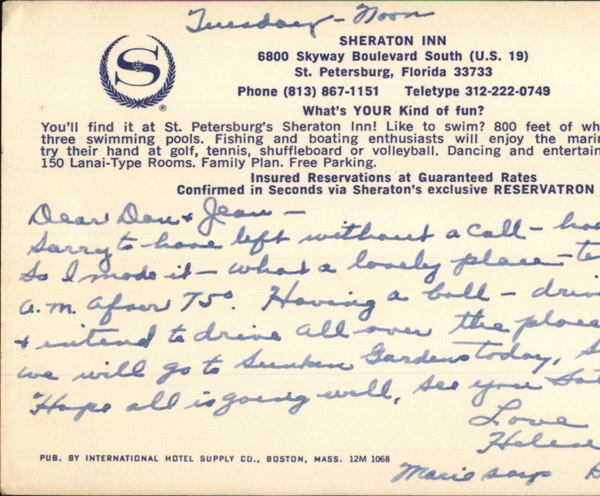 Tuesday - Noon
S
®
SHERATON INN
6800 Skyway Boulevard South (U.S. 19)
St. Petersburg, Florida 33733
Phone (813) 867-1151 Teletype 312-222-0749
What's YOUR Kind of fun?
You'll find it at St. Petersburg's Sheraton Inn! Like to swim? 800 feet of wh
three swimming pools. Fishing and boating enthusiasts will enjoy the marin
try their hand at golf, tennis, shuffleboard or volleyball. Dancing and entertain
150 Lanai-Type Rooms. Family Plan. Free Parking.
Insured Reservations at Guaranteed Rates
Confirmed in Seconds via Sheraton's exclusive RESERVATRON
Dear Dan & Jean -
Sorry to have left without a call - had
So I made it - what a lovely place - te
a.m. after 75°. Having a ball - driv
& intend to drive all over the place
we will go to Sunken Gardens today, S
Hope all is going well, see you Sat
Love
Helene
PUB. BY INTERNATIONAL HOTEL SUPPLY CO., BOSTON, MASS. 12M 1068
Marie says